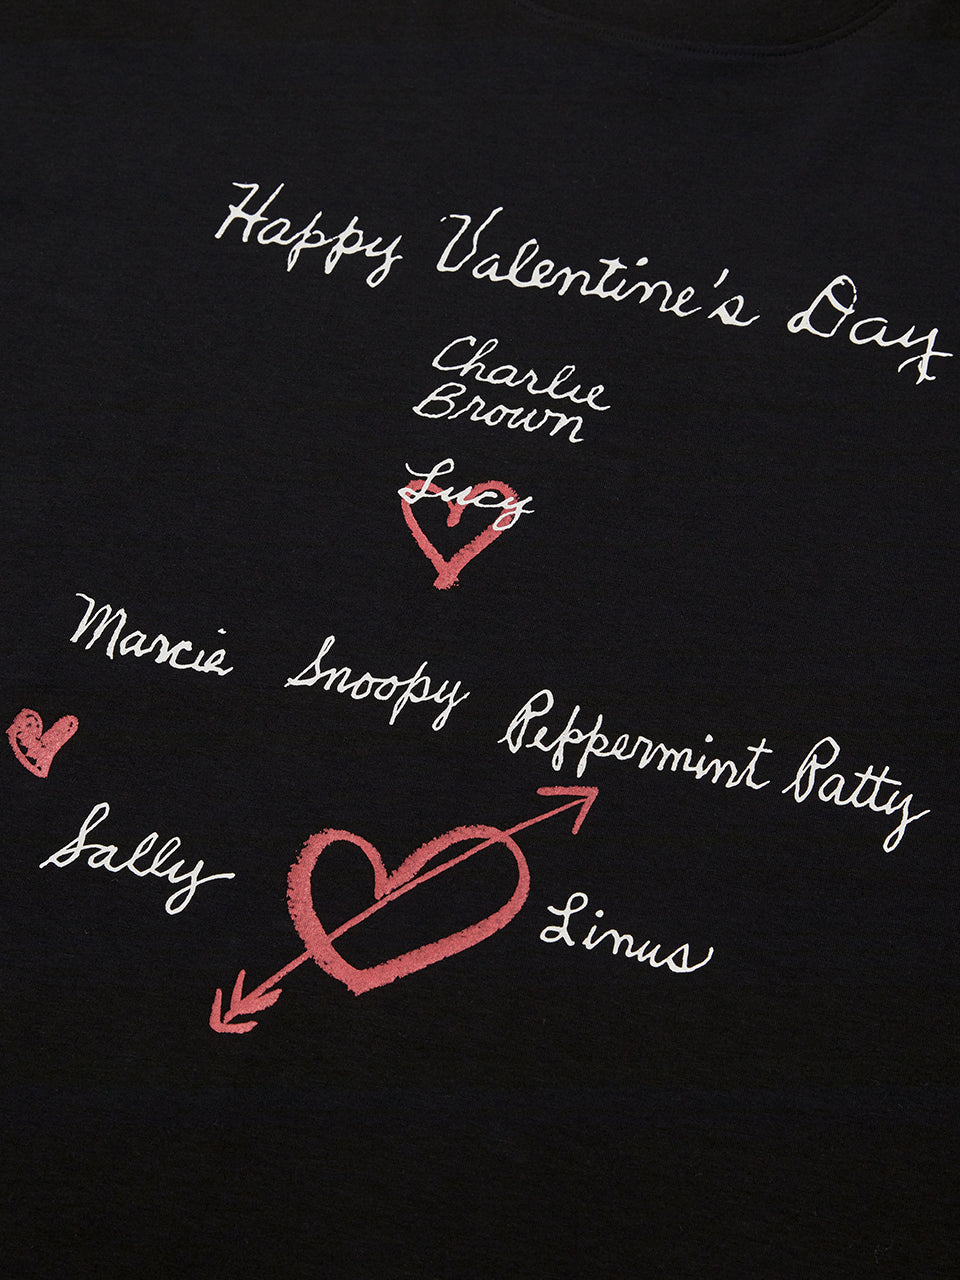 Happy Valentine's Day
Charlie
Brown
Lucy
Marcie Snoopy Peppermint Patty
Sally Linus